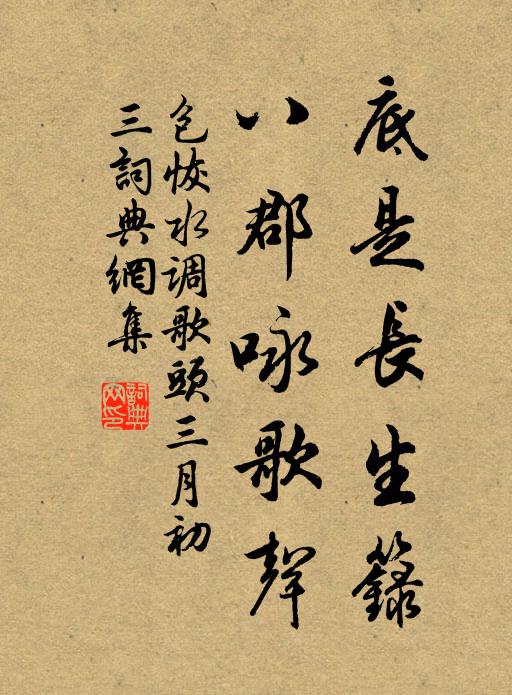 底是長生籙
八郡咏歌聲
包恢水调歌頭三月初
三詞典網集
詞典网印